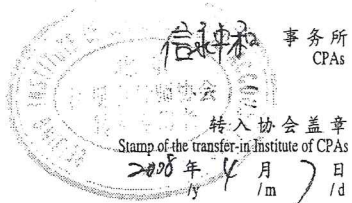 信永中和 事务所
CPAs
转入协会盖章
Stamp of the transfer-in Institute of CPAs
2008 年 4 月 7 日
/y /m /d